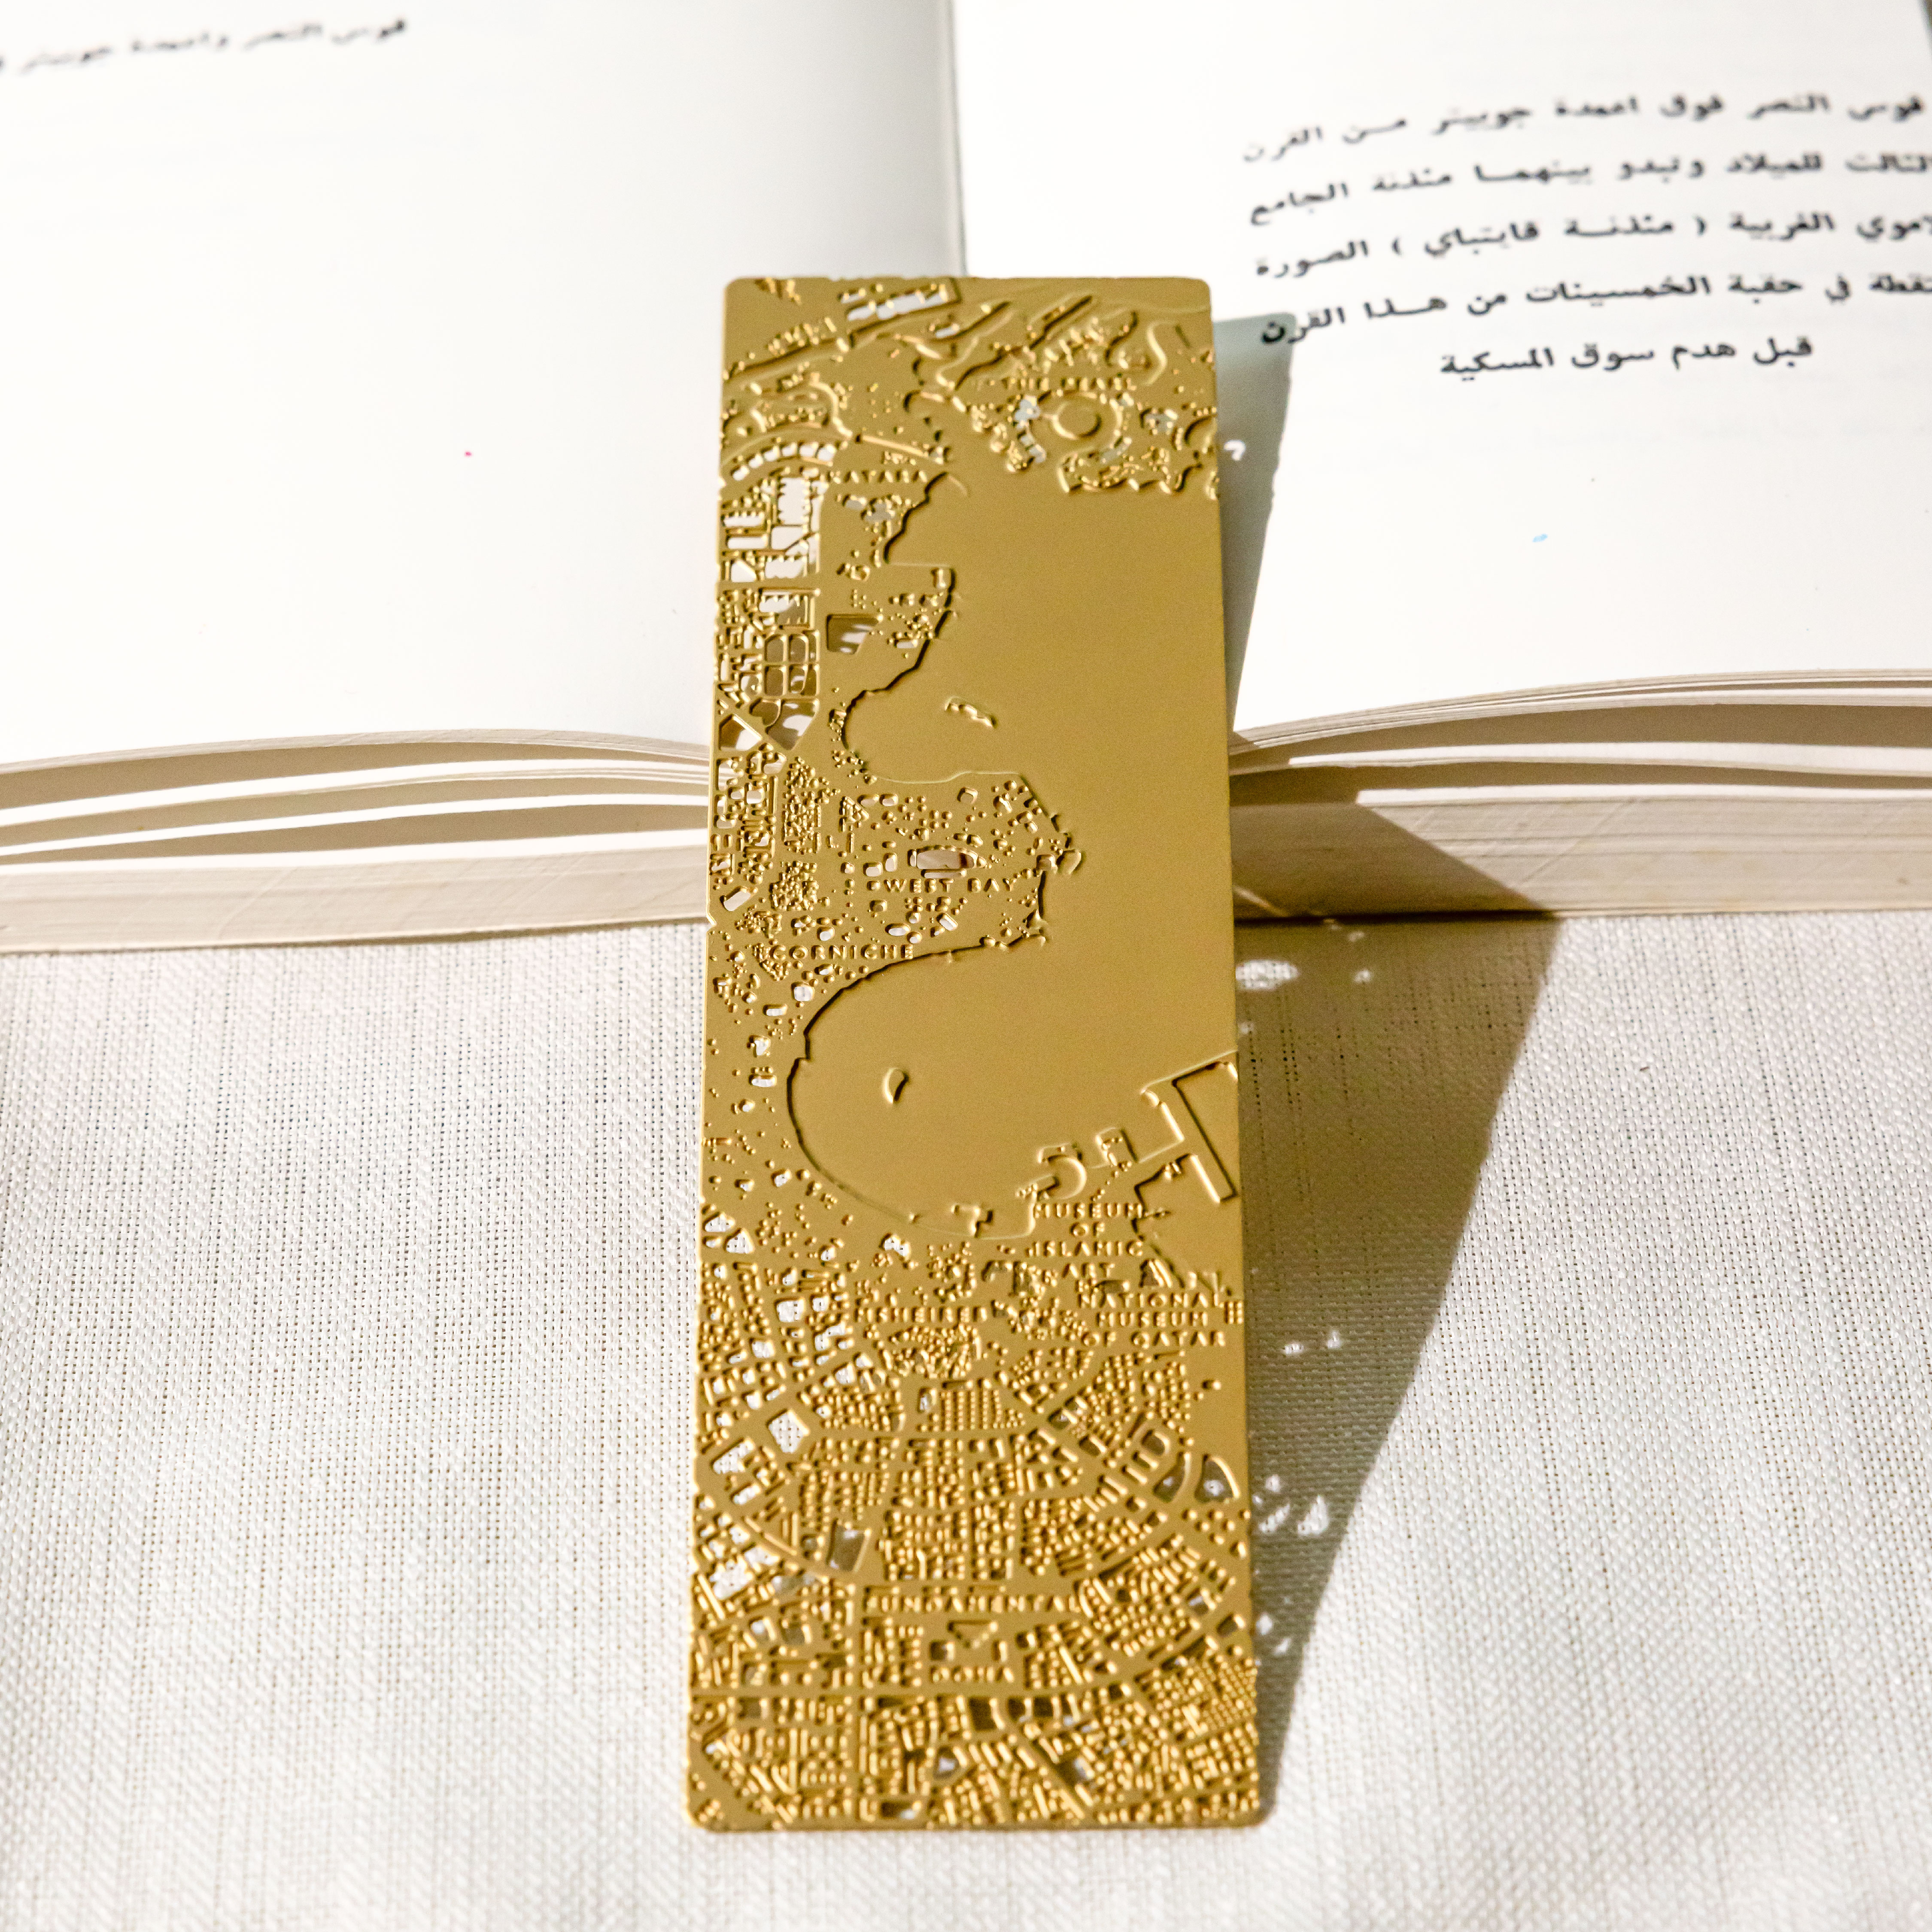 قوس النصر واعمدة جوبيتر
قوس النصر فوق اعمدة جوبيتر مـن القرن
الثالث للميلاد وتبدو بينهمـا مئذنة الجامع
الاموي الغربية ( مئذنـة قايتباي ) الصورة
في حقبة الخمسينات من هـذا القرن
قبل هدم سوق المسكية
THE PEARL
KATARA
WEST BAY
CORNICHE
MUSEUM
OF
ISLAMIC
ART
NATIONAL
MUSEUM
OF QATAR
FUNDAMENTAL
DOHA